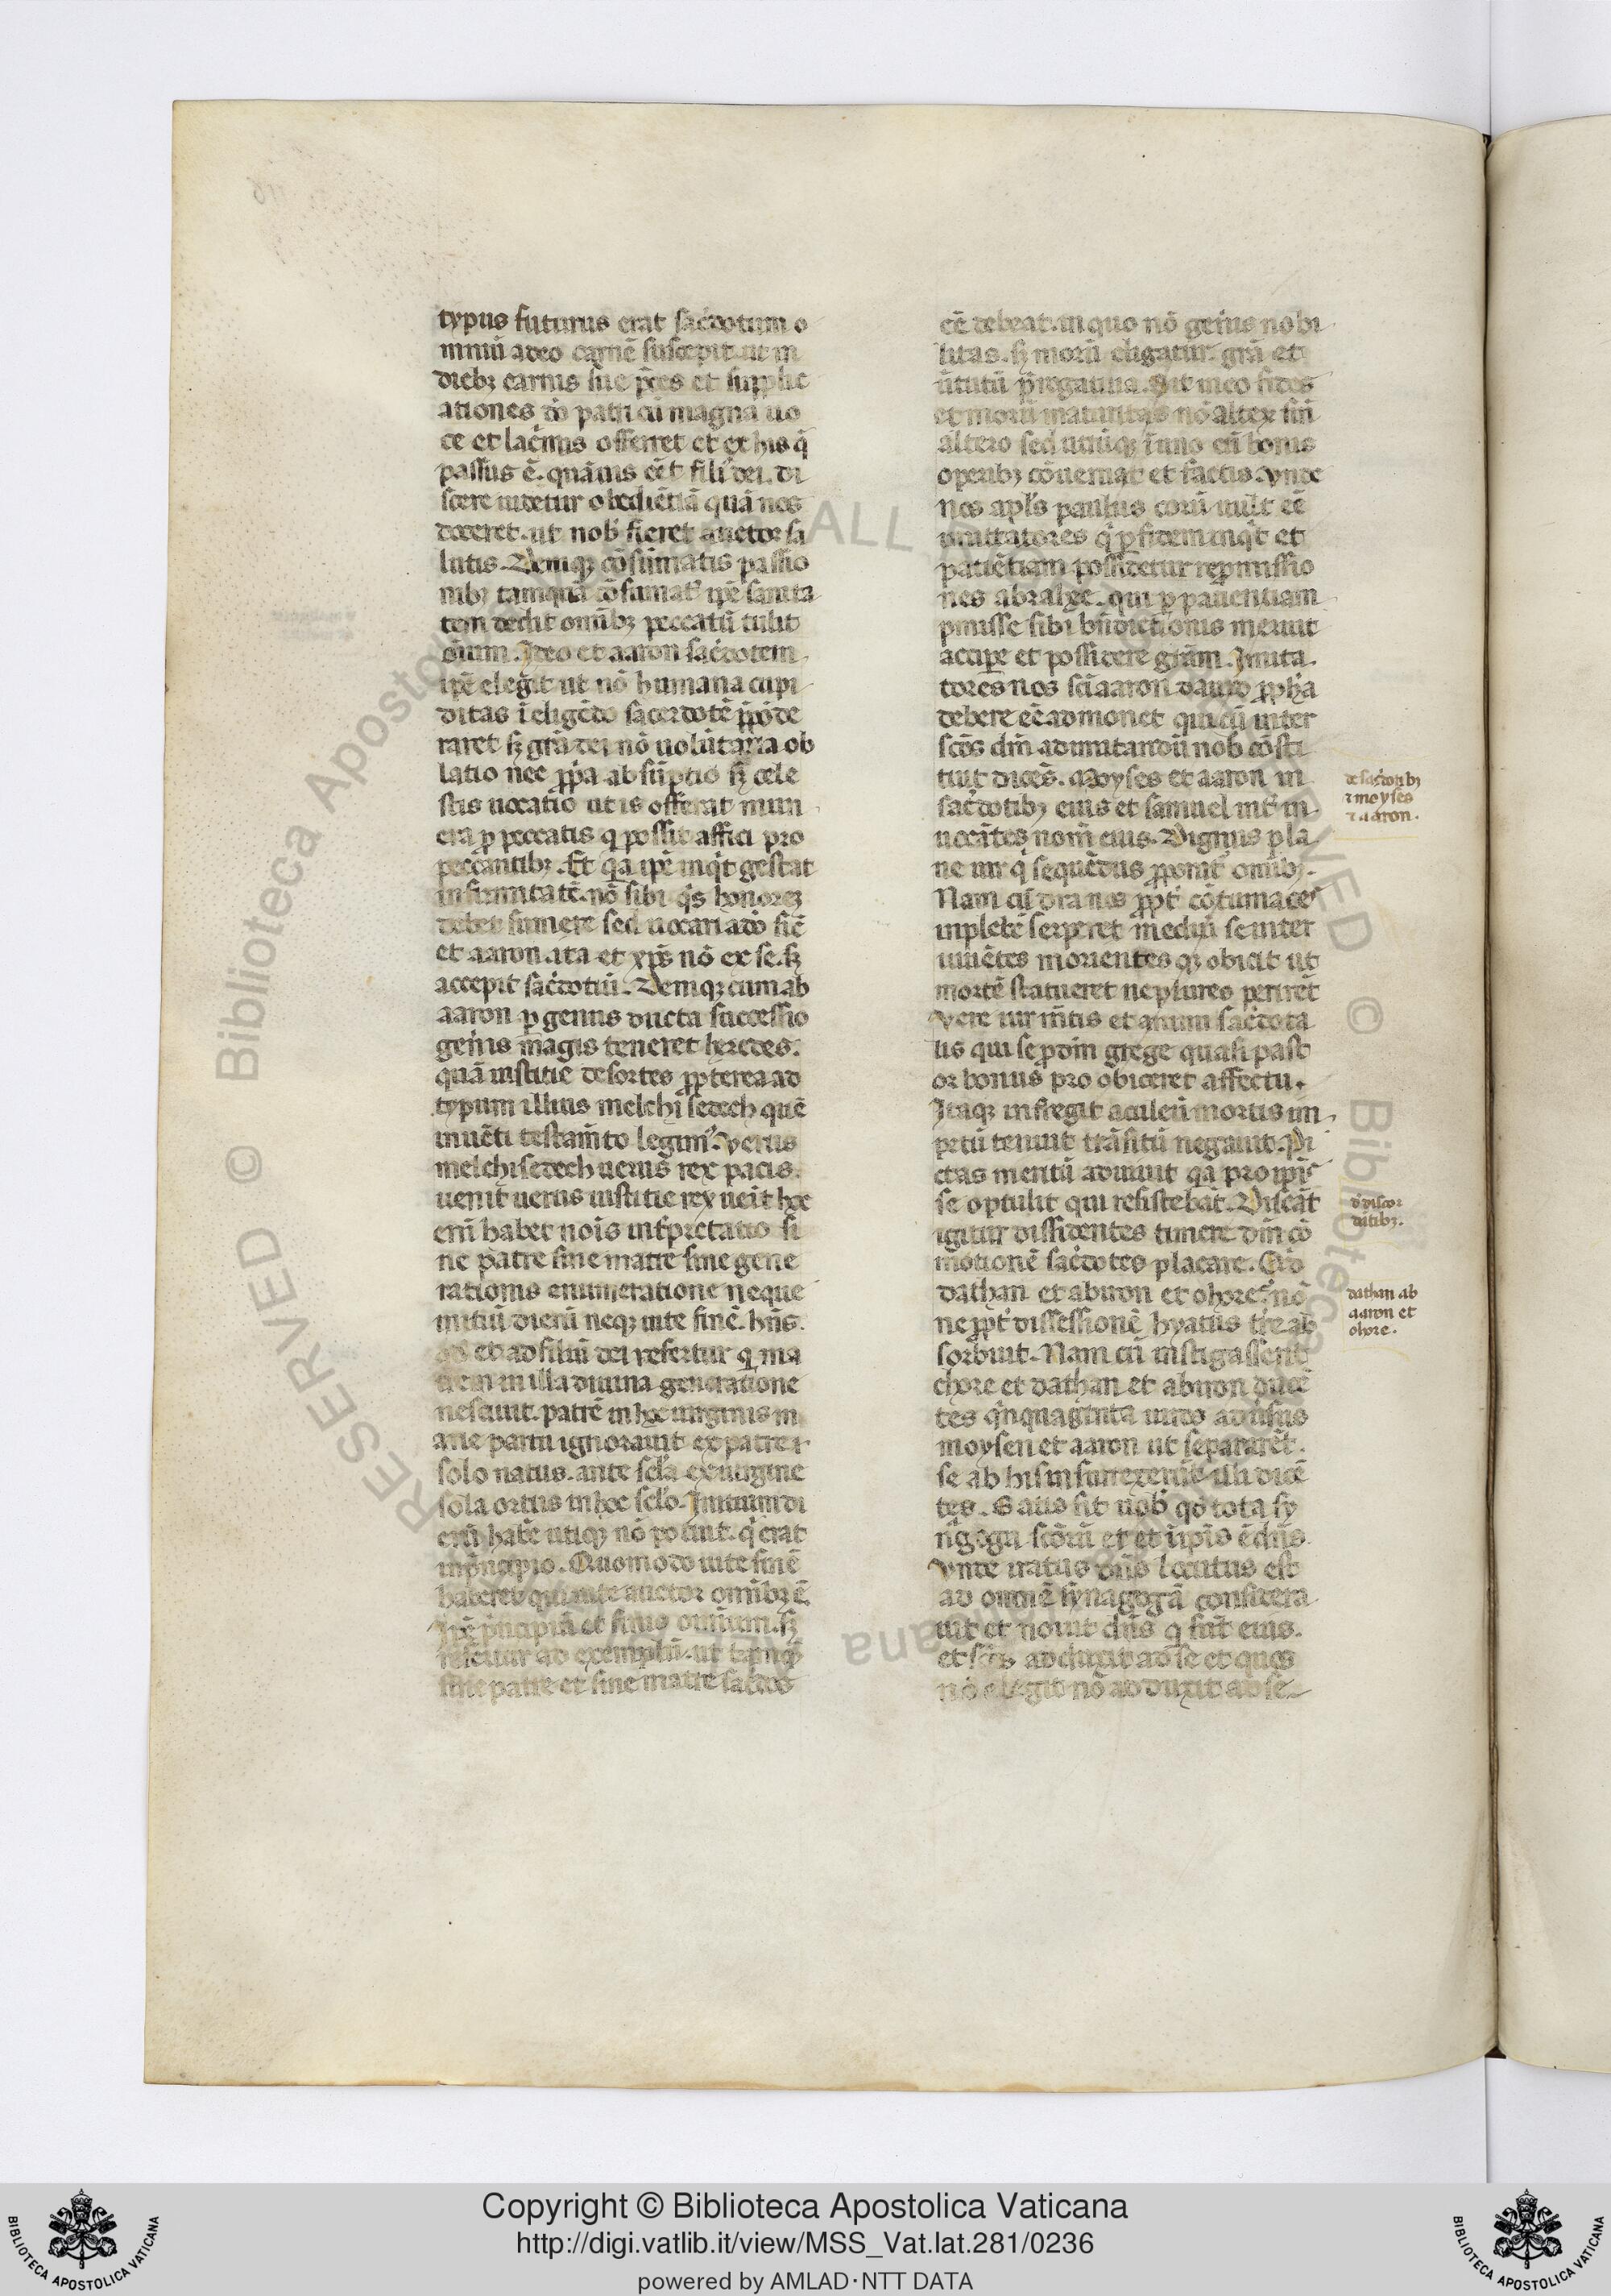 typus futurus erat sac̄dotum o
mniū adeo carnē suscepit. ut in
dieb; carnis sue p̄ces et supplic
ationes dō patri cū magna uo
ce et lac̄imis offerret et ex his q̄
passus ē. quāuis eēt fili' dei. di
scere uidetur obediētiā quā nos
doceret. ut nob' fieret auctor sa
lutis. Deniq; cōsūmatis passio
nib; tamquā cōsumat' ip̄e sanita
tem dedit omīb; peccatū tulit
oīum. Ideo et aaron sac̄dotem
ip̄e elegit ut nō humana cupi
ditas ī eligēdo sacerdotē p̄pōde
raret s; grā dei nō uolūtaria ob
latio nec ꝓp̄a absūptio s; cele
stis uocatio ut is offerat mun
era ꝓ peccatis q̄ possit affici pro
peccantib;. Et q̄a ip̄e inq̄t gestat
infirmitatē. nō sibi q̄s honorē
debet sumere sed uocari a dō sic̄
et aaron. ita et xp̄s nō ex se. s;
accepit sac̄dotiū. Deniq; cum ab
aaron ꝑ genus ducta successio
generis magis teneret heredes.
quā iustitie desortes ꝓpterea ad
typum illius melchisedech quē
in uet̄i testam̄to legim'. Verus
melchisedech uerus rex pacis.
uenit uerus iustitie rex ueit hoc
enī habet noīs int̄pretatio si
ne patre sine matre sine gene
rationis enumeratione neque
initiū dierū neq; uite finē. hn̄s.
qd' et ad filiū dei refertur q̄ ma
trem in illa diuina generatione
nesciuit. patrē in hoc uirginis m
arie partu ignorauit ex patre
solo natus. ante sc̄la ex uirgine
sola ortus in hoc sclō. Initium di
erū habē utiq; nō potuit. q̄ erat
in p̄ncipio. Quomodo uite finē
haberet qui uite auctor omīb; ē.
Ip̄e p̄ncipiū et finis omium. s;
refertur ad exemplū. ut tamq̄
sine patre et sine matre sac̄dos
eē debeat. in quo nō gen̄is nobi
litas. s; morū eligatur grā et
ūtutū p̄rogatiua. Sit in eo fides
et morū maturitas nō alter sīn
altero sed utrūq; ī uno cū bonis
operib; cōueniat et factis. Vnde
nos apl's paulus eorū uult eē
imitatores q̄ ꝑ fidem inq̄t et
patiētiam possidetur repmissio
nes abrahe. qui ꝑ patientiam
pmisse sibi bn̄dictionis meruit
accipe et possidere grām. Imita
tores nos scī aaron dauid ꝓphā
debere eē admonet qui cū inter
scōs dn̄i ad imitandū nob' cōsti
tuit dicēs. Moyses et aaron in
sac̄dotib; eius et samuel int̄ in
uocātes nom̄ eius. Dignus pla
ne uir q̄ sequēdus ꝓponit' omīb;.
Nam cū dira nos ꝓpt' cōtumaces
in plebē serperet mediū se inter
uiuētes morientes q; obicit ut
mortē statueret ne plures perirēt
Vere uir m̄tis et animi sac̄dota
lis qui se ꝓ dn̄i grege quasi past
or bonus pro obiceret affectu.
Itaq; infregit aculeū mortis im
petū tenuit trāsitū negauit. Pi
etas meritū adiuuit q̄a pro ipīs
se optulit qui resistebāt. Discāt
igitur dissidentes timere dn̄i cō
motionē sac̄dotes placare. Quō
dathan et abiron et chore. nō
ne ꝓpt̄ dissessionē hyatus t̄re ab
sorbuit. Nam cū instigassent
chore et dathan et abiron ducē
tes q̄nquaginta uiros aduersus
moysen et aaron ut separarēt.
se ab his insurrexerūt illi dicē
tes. Satis sit uob' qd' tota sy
n̄goga scōrū et et i ipīs ē dn̄s.
Vnde iratus dn̄s locutus est
ad omnē synagogā considera
uit et nouit dn̄s q̄ sūt eius.
et scōs adduxit ad se et quos
nō elegit nō adduxit ad se
de sac̄dotib;
⁊ moyses
⁊ aaron.
d' discor
dātib;.
dathan ab
aaron et
chore.
Copyright © Biblioteca Apostolica Vaticana
http://digi.vatlib.it/view/MSS_Vat.lat.281/0236
powered by AMLAD·NTT DATA
BIBLIOTECA APOSTOLICA VATICANA
BIBLIOTECA APOSTOLICA VATICANA